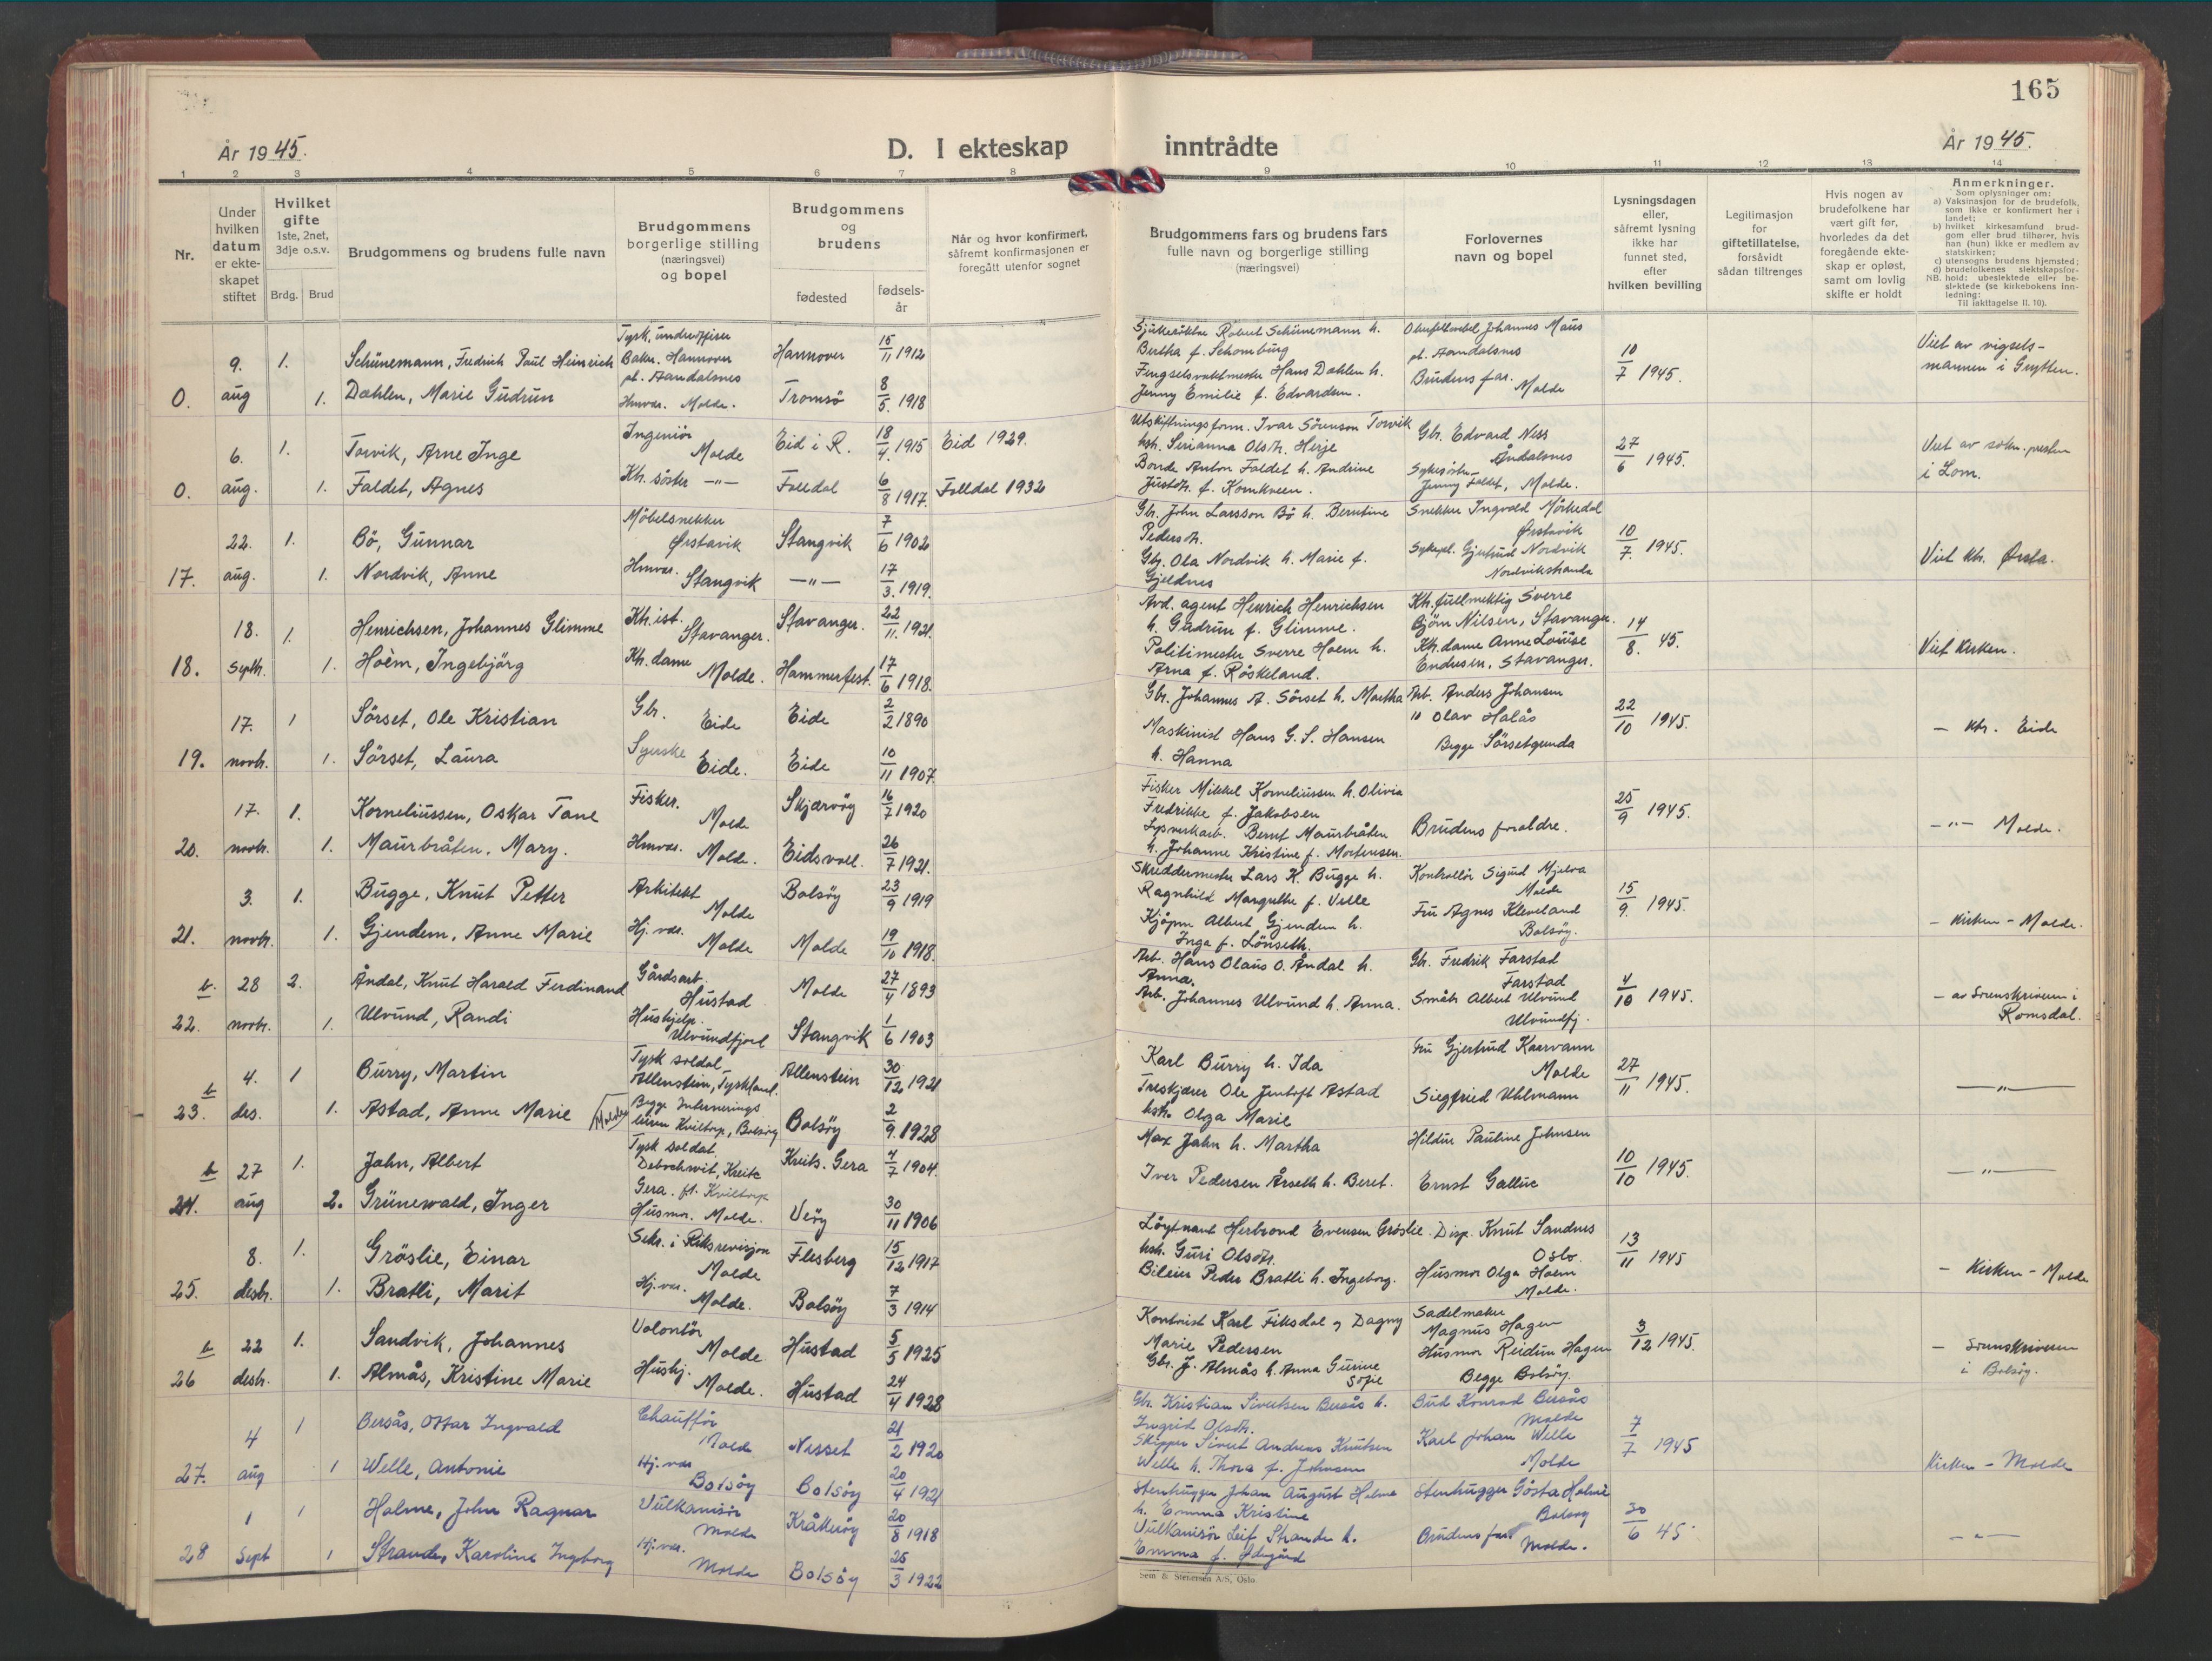 165
År 1945.
D. I ekteskap inntrådte
År 1945.
1 2 3 4 5 6 7 8 9 10 11 12 13 14
Nr.
Under hvilken datum er ekte-skapet stiftet
Hvilket gifte 1ste, 2net, 3dje o.s.v.
Brdg. Brud
Brudgommens og brudens fulle navn
Brudgommens borgerlige stilling (næringsvei) og bopel
Brudgommens og brudens
fødested
fødsels-år
Når og hvor konfirmert, såfremt konfirmasjonen er foregått utenfor sognet
Brudgommens fars og brudens fars fulle navn og borgerlige stilling (næringsvei)
Forlovernes navn og bopel
Lysningsdagen eller, såfremt lysning ikke har funnet sted, efter hvilken bevilling
Legitimasjon for giftetillatelse, forsåvidt sådan tiltrenges
Hvis nogen av brudefolkene har vært gift før, hvorledes da det foregående ekte-skap er opløst, samt om lovlig skifte er holdt
Anmerkninger.
Som oplysninger om:
a) Vaksinasjon for de brudefolk, som ikke er konfirmert her i landet;
b) hvilket kirkesamfund brud-gom eller brud tilhører, hvis han (hun) ikke er medlem av statskirken;
c) utensogns brudens hjemsted;
d) brudefolkenes slektskapsfor-hold: ubeslektede eller be-slektede (se kirkebokens inn-ledning:
NB.
Til iakttagelse II. 10).
9. 1. Schünemann, Fredrich Paul Heinrich Tysk underoffiser Baker. Hannover pt. Aandalsnes Hannover 15/11 1912 Sjukerökter Robert Schünemann h. Bertha f. Schomburg Johannes Maus pt. Aandalsnes 10/7 1945. Viet av vigsels-mannen i Grytten.
0. aug 1. Dahlen, Marie Gudrun Hmvær. Molde. Tromsö 8/5. 1918 Fengselsvaktmester Hans Dahlen h. Jenny Emilie f. Edvardsen. Brudens far. Molde
6. 1. Torvik, Arne Inge Ingeniör Molde Eid i R. 18/4. 1915 Eid 1929. Utskiftningsform. Ivar Sörensen Torvik hsh. Serianna Olsdtr. Herje Gbr. Edvard Ness Åndalsnes 27/6 1945. Viet av sokn.presten i Lom.
0. aug. 1. Faldet, Agnes Kh. söster -"- Folldal 6/8 1917. Folldal 1932 Bonde Anton Faldet h. Andrine Justdtr. f. Kornkveen. Jenny Faldet, Molde.
22. 1. Bö, Gunnar Möbelsnekker Ørstavik Stangvik 7/6 1902 Gbr. John Larsson Bö h. Berntine Pedersdtr. Snekker Ingvald Mörkedal Ørstavik 10/7. 1945. Viet khr. Ørsta.
17. aug. 1. Nordvik, Anne Hmvær. Stangvik -"- 17/3. 1919. Gbr. Ola Nordvik h. Marie f. Gjeldnes Sykepl. Gjertrud Nordvik Nordvikstranda
18. 1. Henrichsen, Johannes Glimme Kh.ist. Stavanger. Stavanger. 22/11. 1921. Avd. agent Henrich Henrichsen h. Gudrun f. Glimme. Kh.fullmektig Sverre Björn Nilsen, Stavanger. 14/8. 45. Viet Kirken.
18. Septbr. 1. Hoèm, Ingebjörg Kh. dame Molde. Hammerfest. 17/6 1918. Politimester Sverre Hoem h. Arna f. Röskeland. Kh.dame Anne Louise Endresen, Stavanger.
17. 1 Sörset, Ole Kristian Gbr. Eide Eide 2/2 1890 Gbr. Johannes A. Sörset h. Martha Arb. Anders Johansen 22/10 1945. - khr. Eide
19. novbr. 1. Sörset, Laura Syerske Eide. Eide 10/11 1907. Maskinist Hans G. S. Hansen h. Hanna " Olav Halås Begge Sörsetgrenda
17. 1. Korneliussen, Oskar Tane Fisker. Molde Skjærvöy 16/7 1920 Fisker Mikkel Korneliussen h. Olivia Fredrikke f. Jakobsen 25/9 1945. -"- Molde.
20. novbr. 1. Maurbråten, Mary. Hmvær. Molde. Eidsvoll. 26/7 1921. Bernt Maurbråten h. Johanne Kristine f. Mortensen. Brudens foreldre.
3. 1. Bugge, Knut Petter Arkitekt Molde Bolsöy 23/9 1919 Skreddermester Lars K. Bugge h. Ragnhild Margrethe f. Velle Kontrollör Sigurd Mjelva Molde 15/9. 1945. - Kirken - Molde.
21. novbr. 1. Gjendem, Anne Marie Hj.vær. Molde Molde 19/10 1918. Kjöpm. Albert Gjendem h. Inga f. Lönseth. Fru Agnes Kleveland Bolsöy.
b. 28 2. Åndal, Knut Harald Ferdinand Gårdsarb. Hustad Molde 27/4 1893 Arb. Hans Olaus O. Åndal h. Anna. Gbr. Fredrik Farstad Farstad 4/10 1945. - av Sorenskriveren i Romsdal.
22. novbr. 1. Ulvund, Randi Hushjelp. Ulvundfjord Stangvik 1/6 1903 Arb. Johannes Ulvund h. Anna. Småbr. Albert Ulvund Ulvundfj.
b 4. 1 Burry, Martin Tysk soldat Allenstein, Tyskland. Allenstein 30/12 1921 Karl Burry h. Ida Fru Gjertrud Kaervann Molde 27/11 1945. -"-
23. des. 1. Astad, Anne Marie (Molde) Begge Internerings leiren Kviltorp, Bolsöy Bolsöy 2/9. 1928 Treskjærer Ole Jentoft Astad hsh. Olga Marie Siegfried Uhlmann
b 27 1. Jahn, Albert Tysk soldat. Debschwit, Kreits Gera. pt. Kviltorp Kreits. Gera 4/7 1904. Max Jahn h. Martha Hildur Pauline Johnsen 10/10 1945. -"-
24. aug 2. Grünewald, Inger Husmor. Molde. Veöy 30/11 1906 Iver Pedersen Årseth h. Beret. Ernst Galluc
8. 1. Gröslie, Einar Sekr. i Riksrevisjon Molde Flesberg 15/12 1917 Löytnant Herbrand Evensen Gröslie hsh. Guri Olsdtr. Disp. Knut Sandnes Oslo 13/11 1945 - Kirken - Molde
25. desbr. 1. Bratli, Marit Hj.vær. Molde. Bolsöy 7/3 1914 Bileier Peder Bratli h. Ingeborg. Husmor Olga Hoem Molde.
b 22 1. Sandvik, Johannes Volontör Molde Hustad 5/5 1925 Kontorist Karl Fiksdal og Dagny Marie Pedersen Sadelmaker Magnus Hagen 3/12 1945. - Sorenskriveren i Bolsöy.
26 desbr. 1. Almås, Kristine Marie Hushj. Molde. Hustad 24/4 1928 Gbr. J. Almås h. Anna Gurine Sofie Husmor Reidun Hagen Begge Bolsöy.
4 1 Bersås, Ottar Ingvald Chaufför Molde Nesset 21/2 1920 Gbr. Kristian Sivertsen Bersås h. Ingrid Olsdtr. Bud Konrad Bersås Molde 7/7 1945 Kirken - Molde
27. aug 1 Welle, Antonie Hj.vær Bolsöy Bolsöy 20/4 1921 Skipper Sivert Andreas Knutsen Welle h. Thora f. Johnsen Karl Johan Welle Molde
1 1 Holme, John Ragnar Vulkanisör Molde Kråkeröy 20/8 1918 Stenhugger Johan August Holme h. Emma Kristine Stenhugger Gösta Holme Bolsöy 30/6 45. -"-
28 Sept 1 Strande, Karoline Ingborg Hj.vær. Molde Bolsöy 25/3 1922 Vulkanisör Leif Strande h. Emma f. Ødegård Brudens far Molde.
Sem & Stenersen A/S, Oslo